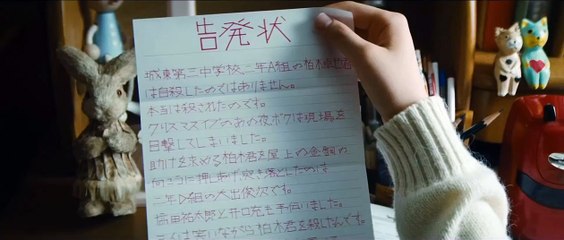 告発状
城東第三中学校、二年A組の柏木卓也君
は自殺したのではありません。
本当は殺されたのです。
クリスマスイブのあの夜ボクは現場を
目撃してしまいました。
助けを求める柏木君を屋上の金網の
向こうに押しあげ突き落としたのは
二年D組の大出俊次です。
橋田祐太郎と井口充も手伝いました。
三人は笑いながら柏木君を殺したんです。